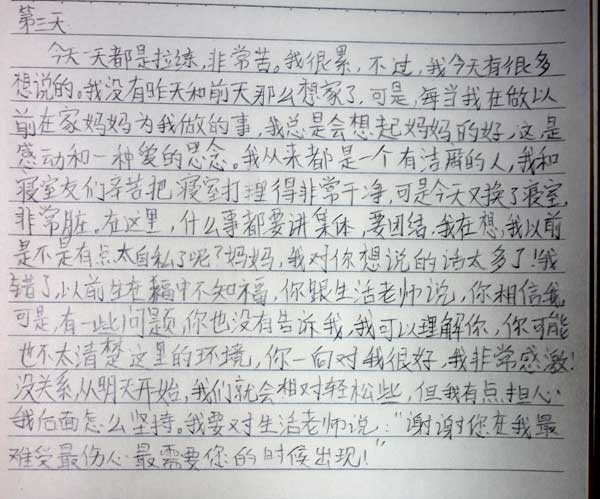 第三天
今天一天都是拉练,非常苦。我很累,不过,我今天有很多
想说的。我没有昨天和前天那么想家了,可是,每当我在做以
前在家妈妈为我做的事,我总是会想起妈妈的好,这是
感动和一种爱的思念。我从来都是一个有洁癖的人,我和
寝室友们辛苦把寝室打理得非常干净,可是今天又换了寝室,
非常脏。在这里,什么事都要讲集体,要团结,我在想,我以前
是不是有点太自私了呢?妈妈,我对你想说的话太多了!我
错了,以前生在福中不知福,你跟生活老师说,你相信我,
可是,有一些问题,你也没有告诉我,我可以理解你,你可能
也不太清楚这里的环境,你一向对我很好,我非常感激!
没关系,从明天开始,我们就会相对轻松些,但我有点担心
我后面怎么坚持。我要对生活老师说:“谢谢你在我最
难受最伤心最需要你的时候出现!”